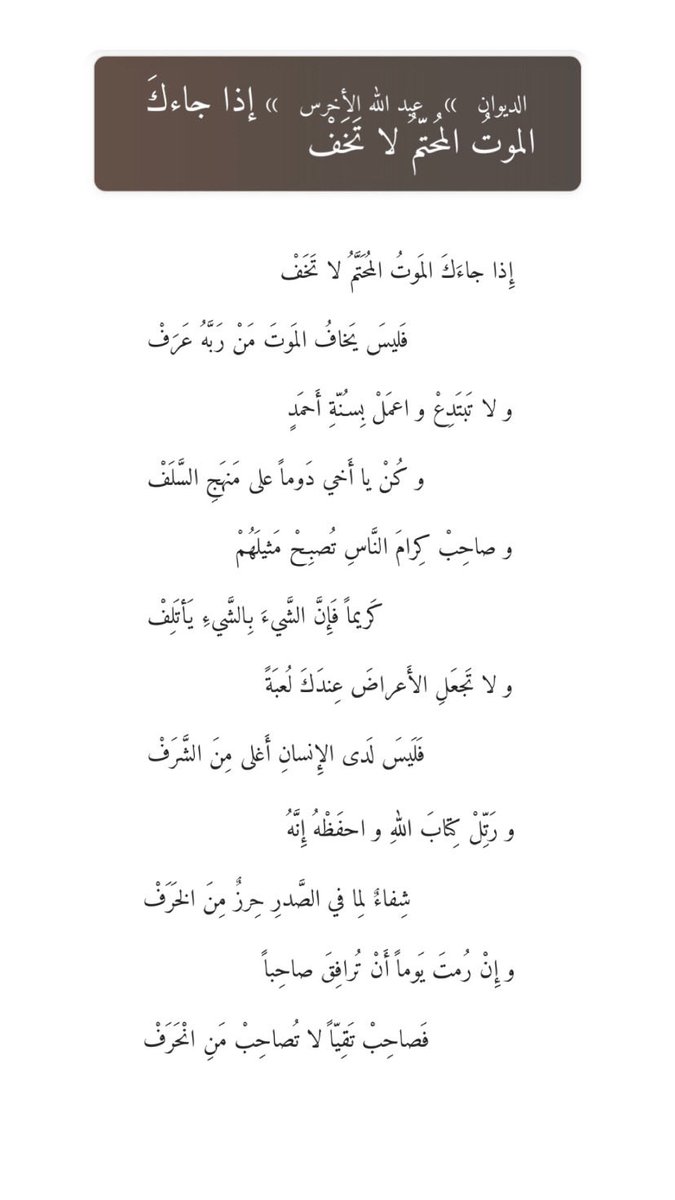 الديوان » عبد الله الأخرس » إذا جاءكَ
الموتُ المُحتّمُ لا تَخَفْ
إِذا جاءَكَ المَوتُ المُحَتَّمُ لا تَخَفْ
فَليسَ يَخافُ المَوتَ مَنْ رَبَّهُ عَرَفْ
و لا تَبتَدِعْ و اعمَلْ بِسُنّةِ أَحمَدٍ
و كُنْ يا أَخي دَوماً على مَنهَجِ السَّلَفْ
و صاحِبْ كِرامَ النَّاسِ تُصبِحْ مَثيلَهُمْ
كَريماً فَإِنَّ الشَّيءَ بِالشَّيءِ يَأتَلِفْ
و لا تَجعَلِ الأَعراضَ عِندَكَ لُعبَةً
فَلَيسَ لَدى الإِنسانِ أَغلى مِنَ الشَّرَفْ
و رَتِّلْ كِتابَ اللهِ و احفَظْهُ إِنَّهُ
شِفاءٌ لِما في الصَّدرِ حِرزٌ مِنَ الخَرَفْ
و إِنْ رُمتَ يَوماً أَنْ تُرافِقَ صاحِباً
فَصاحِبْ تَقِيّاً لا تُصاحِبْ مَنِ انْحَرَفْ